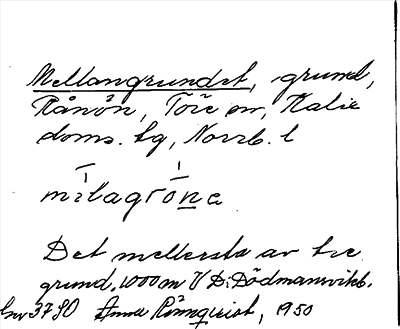 Mellangrundet, grund,
Rånön, Töre sn, Kalix
doms. tg, Norrb. l
Det mellersta av tre
grund. 1000 m V D: Dödmansvikb.
Inv 3780 Anna Rönnqvist, 1950